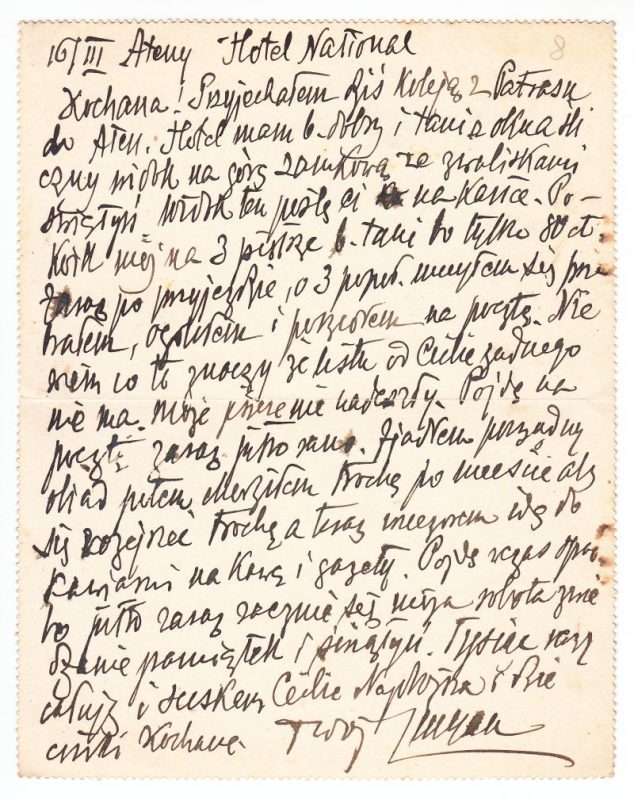 16/III Ateny Hotel National
8
Kochana! Przyjechałem dziś koleją z Patrasu
do Aten. Hotel mam b. dobry i tani z okna śli
czny widok na górę zamkową ze zwaliskami
świątyń. Widok ten poślę ci na kartce. Po-
koik mój na 3 piętrze b. tani bo tylko 80 ct.
Zaraz po przyjeździe, o 3 popoł. umyłem się prze
brałem, ogoliłem i poszedłem na pocztę. Nie
wiem co to znaczy że listu od Ciebie żadnego
nie ma. Może jeszcze nie nadeszły. Pójdę na
pocztę zaraz jutro rano. Zjadłem porządny
obiad potem chodziłem trochę po mieście aby
się rozejrzeć trochę a teraz wieczorem idę do
kawiarni na kawę i gazety. Pójdę wczas spać
bo jutro zaraz zacznie się moja robota zwie
dzanie pamiątek i świątyń. Tysiąc razy
całuję i ściskam Ciebie Najdroższa i dzie
ciaki Kochane. Twój